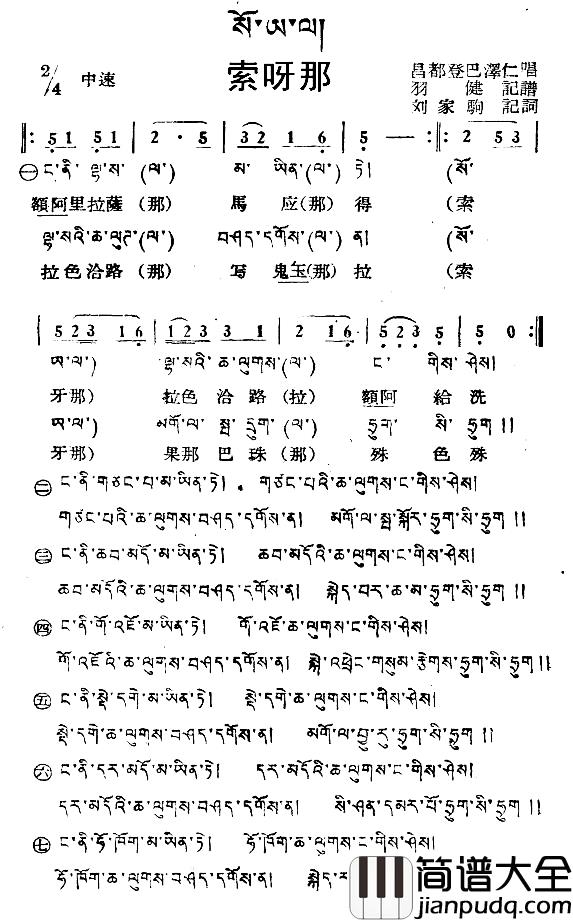 སོ་ཨ་ལ།
索呀那
2/4 中速
昌都登巴澤仁唱
羽健記譜
刘家驹記詞
‖: 51 51 | 2 · 5 | 32 16 | 5 — | 2 53 |
㊀ ང་ནི་ལྷ་ས་(ལ་) མ་ཡིན་(ལ་) ཏེ། (སོ་
額阿里拉薩(那) 馬应(那)得 (索
ལྷ་སའི་ཆ་ལུཊ་(ལ་) བཤད་དགོས་(ལ་) ན། (སོ་
拉色洽路(那) 写鬼玉(那)拉 (索
| 523 16 | 1223 31 | 2 16 | 5235 | 5 0 :‖
ཨ་ལ་) ལྷ་སའི་ཆ་ལུགས་(ལ་) ང་ གིས་ཤེས།
牙那) 拉色洽路(拉) 額阿 給洗
ཨ་ལ་) མགོ་ལ་སྤ་དྲུག་(ལ་) ཧྲུག་ སི་ ཧྲུག །།
牙那) 果那巴珠(那) 殊色殊
㊁ ང་ནི་གཙང་པ་མ་ཡིན་ཏེ། གཙང་པའི་ཆ་ལུགས་ང་གིས་ཤེས།
གཙང་པའི་ཆ་ལུགས་བཤད་དགོས་ན། མགོ་ལ་སྤ་སྐོར་ཧྲུག་སི་ཧྲུག །།
㊂ ང་ནི་ཆབ་མདོ་མ་ཡིན་ཏེ། ཆབ་མདོའི་ཆ་ལུགས་ང་གིས་ཤེས།
ཆབ་མདོའི་ཆ་ལུགས་བཤད་དགོས་ན། སྐེད་བར་ཆ་མ་ཧྲུག་སི་ཧྲུག །།
㊃ ང་ནི་གོ་འཇོ་མ་ཡིན་ཏེ། གོ་འཇོ་ཆ་ལུགས་ང་གིས་ཤེས།
གོ་འཇོའི་ཆ་ལུགས་བཤད་དགོས་ན། སྐེ་འཕྲེང་གསུམ་རྩེགས་ཧྲུག་སི་ཧྲུག །།
㊄ ང་ནི་སྡེ་དགེ་མ་ཡིན་ཏེ། སྡེ་དགེ་ཆ་ལུགས་ང་གིས་ཤེས།
སྡེ་དགེ་ཆ་ལུགས་བཤད་དགོས་ན། མགོ་ལ་བྱུ་རུ་ཧྲུག་སི་ཧྲུག །།
㊅ ང་ནི་དར་མདོ་མ་ཡིན་ཏེ། དར་མདོའི་ཆ་ལུགས་ང་གིས་ཤེས།
དར་མདོའི་ཆ་ལུགས་བཤད་དགོས་ན། སི་ཤན་དམར་པོ་ཧྲུག་སི་ཧྲུག །།
㊆ ང་ནི་ཧོ་ཁོག་མ་ཡིན་ཏེ། ཧོ་ཁོག་ཆ་ལུགས་ང་གིས་ཤེས།
ཧོ་ཁོག་ཆ་ལུགས་བཤད་དགོས་ན། སྐེད་
简谱大全
www.jianpudq.com